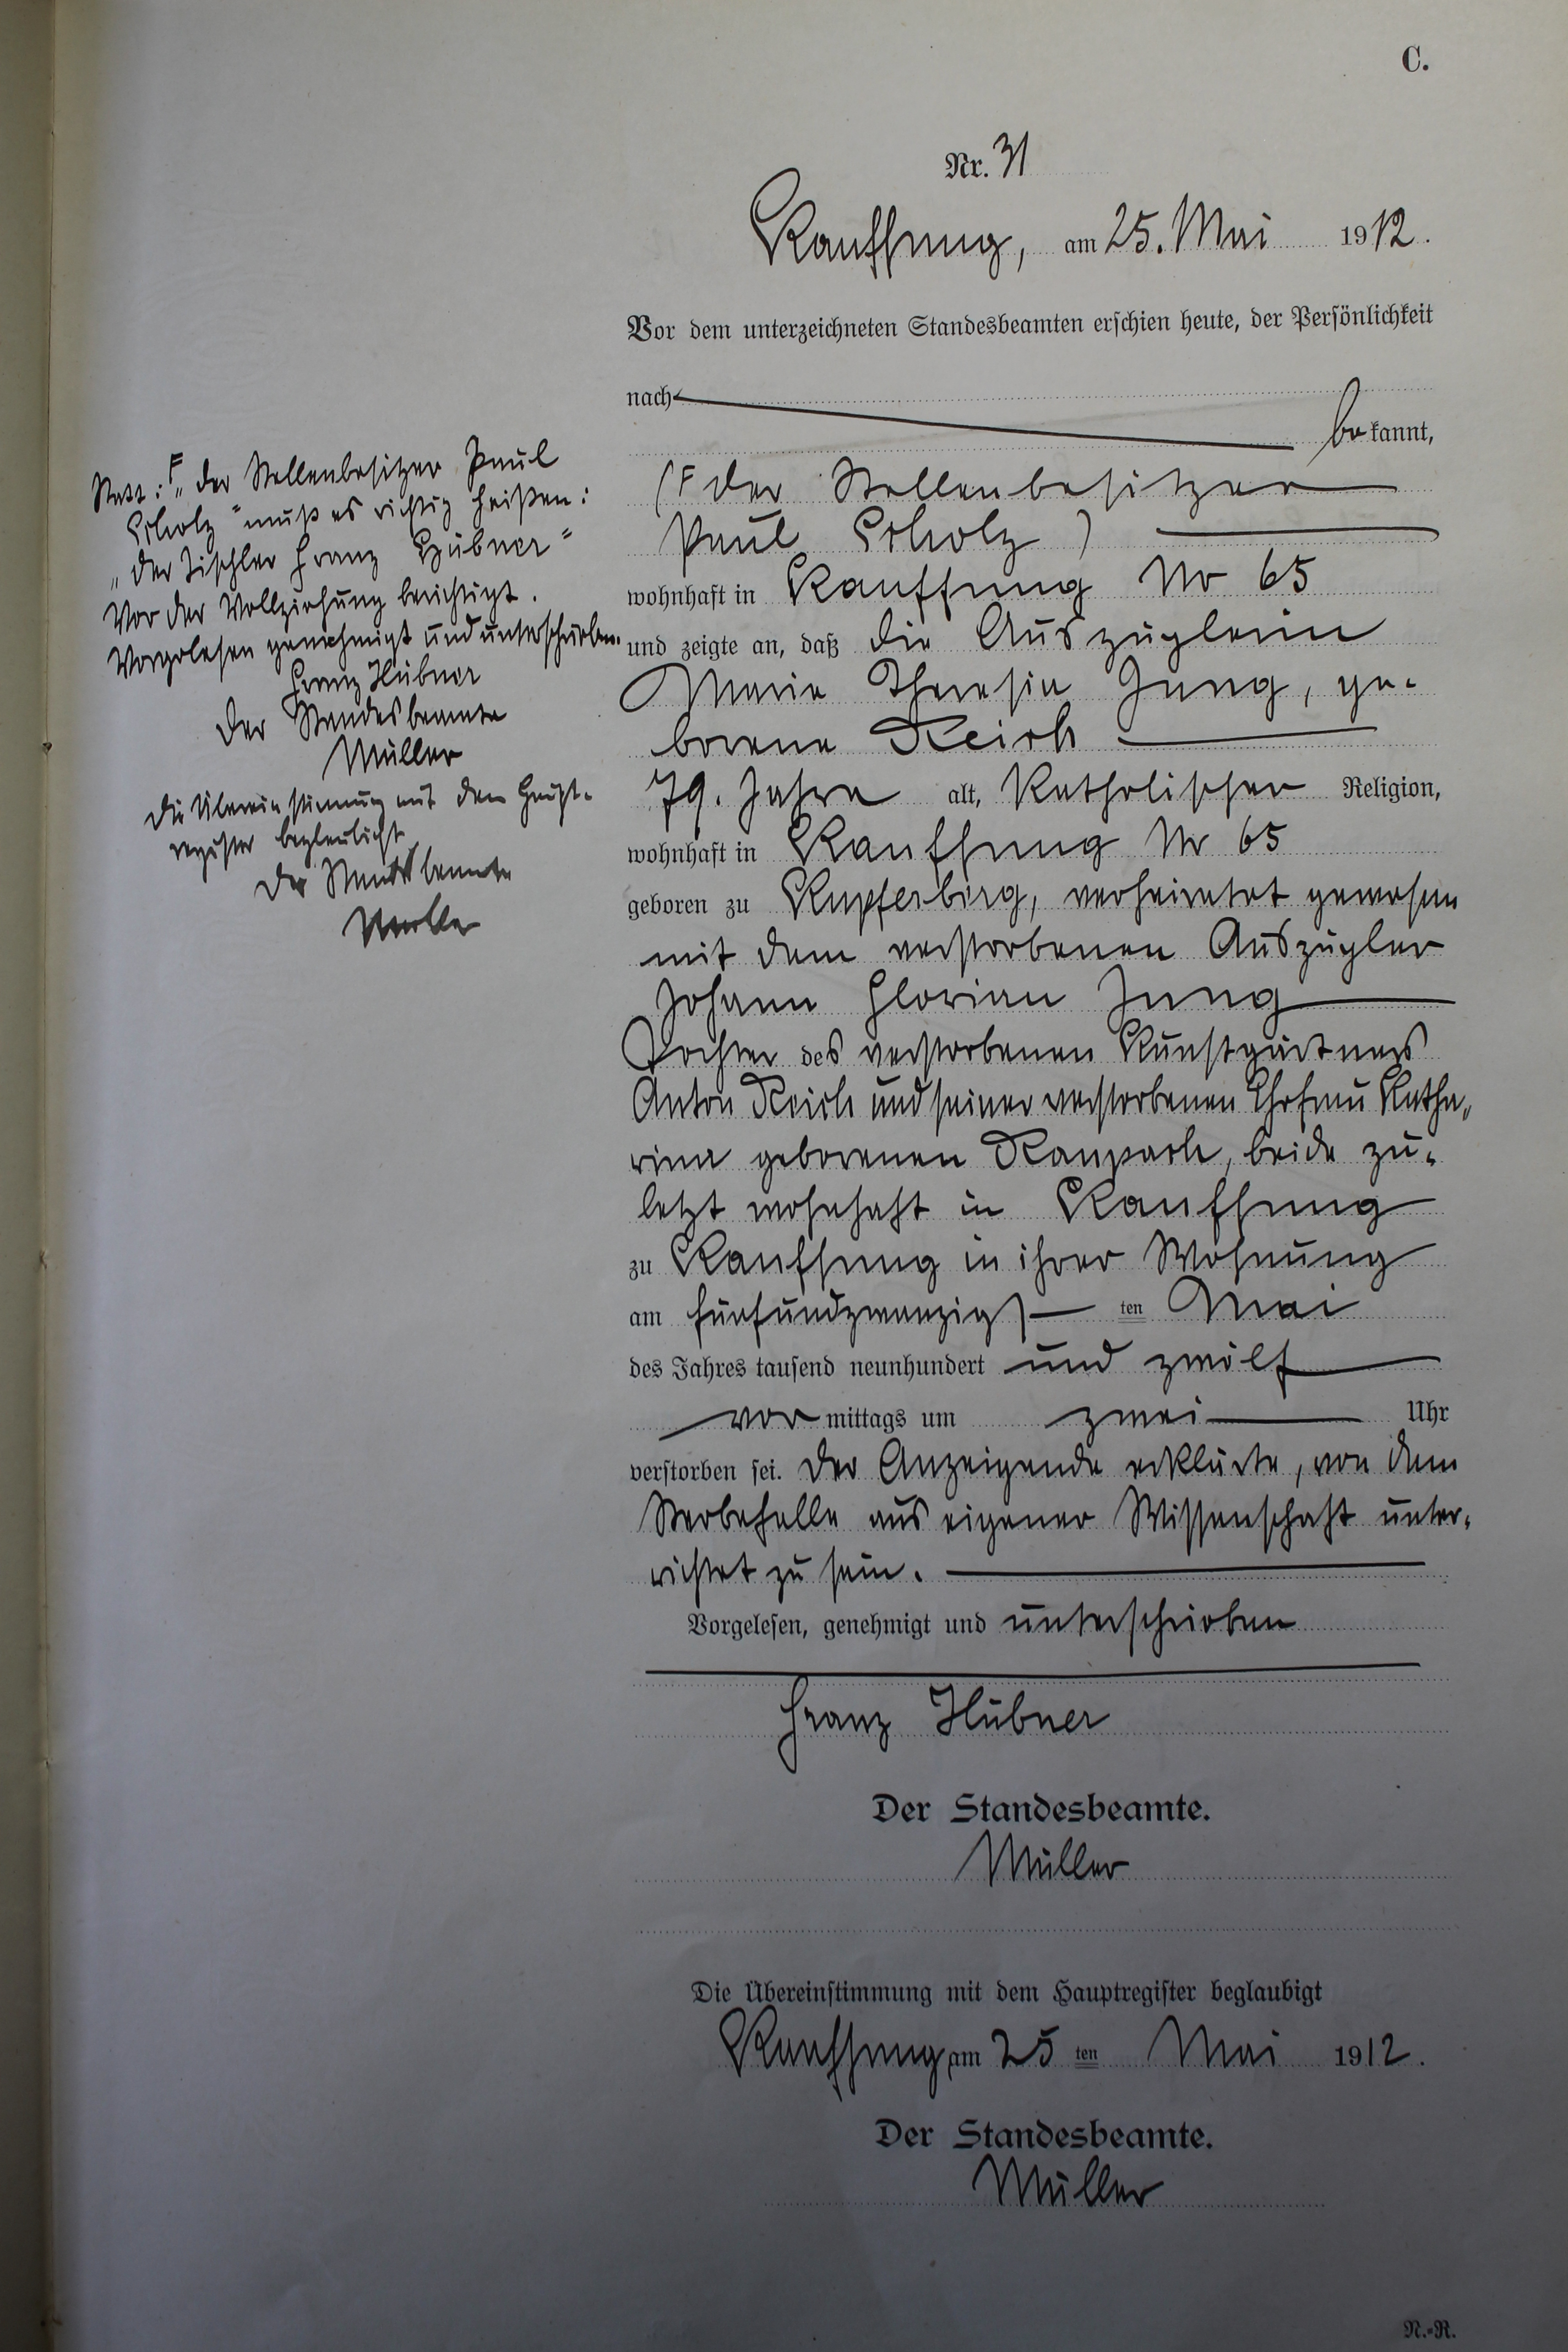 C.
Nr. 31
Kauffung, am 25. Mai 1912.
Vor dem unterzeichneten Standesbeamten erschien heute, der Persönlichkeit
nach
bekannt,
(F der Stellenbesitzer
Paul Scholz)
wohnhaft in Kauffung No 65
und zeigte an, daß die Auszüglerin
Maria Theresia Jung, ge-
borene Reich
79. Jahre alt, Katholischer Religion,
wohnhaft in Kauffung Nr 65
geboren zu Kupferberg, verheiratet gewesen
mit dem verstorbenen Auszügler
Johann Florian Jung
Tochter des verstorbenen Kunstgärtners
Anton Reich und seiner verstorbenen Ehefrau Katha-
rina geborenen Raupach, beide zu-
letzt wohnhaft in Kauffung
zu Kauffung in ihrer Wohnung
am fünfundzwanzigsten Mai
des Jahres tausend neunhundert und zwölf
vormittags um zwei Uhr
verstorben sei. Der Anzeigende erklärte, von dem
Sterbefalle aus eigener Wissenschaft unter-
richtet zu sein.
Vorgelesen, genehmigt und unterschrieben
Franz Hübner
Der Standesbeamte.
Müller
Die Übereinstimmung mit dem Hauptregister beglaubigt
Kauffung am 25ten Mai 1912.
Der Standesbeamte.
Müller
N.-R.
Statt: F „der Stellenbesitzer Paul
Scholz" muß es richtig heißen:
„der Tischler Franz Hübner"
Vor der Vollziehung berichtigt.
Vorgelesen genehmigt und unterschrieben.
Franz Hübner
Der Standesbeamte
Müller
Die Übereinstimmung mit dem Haupt-
register beglaubigt
Der Standesbeamte
Müller